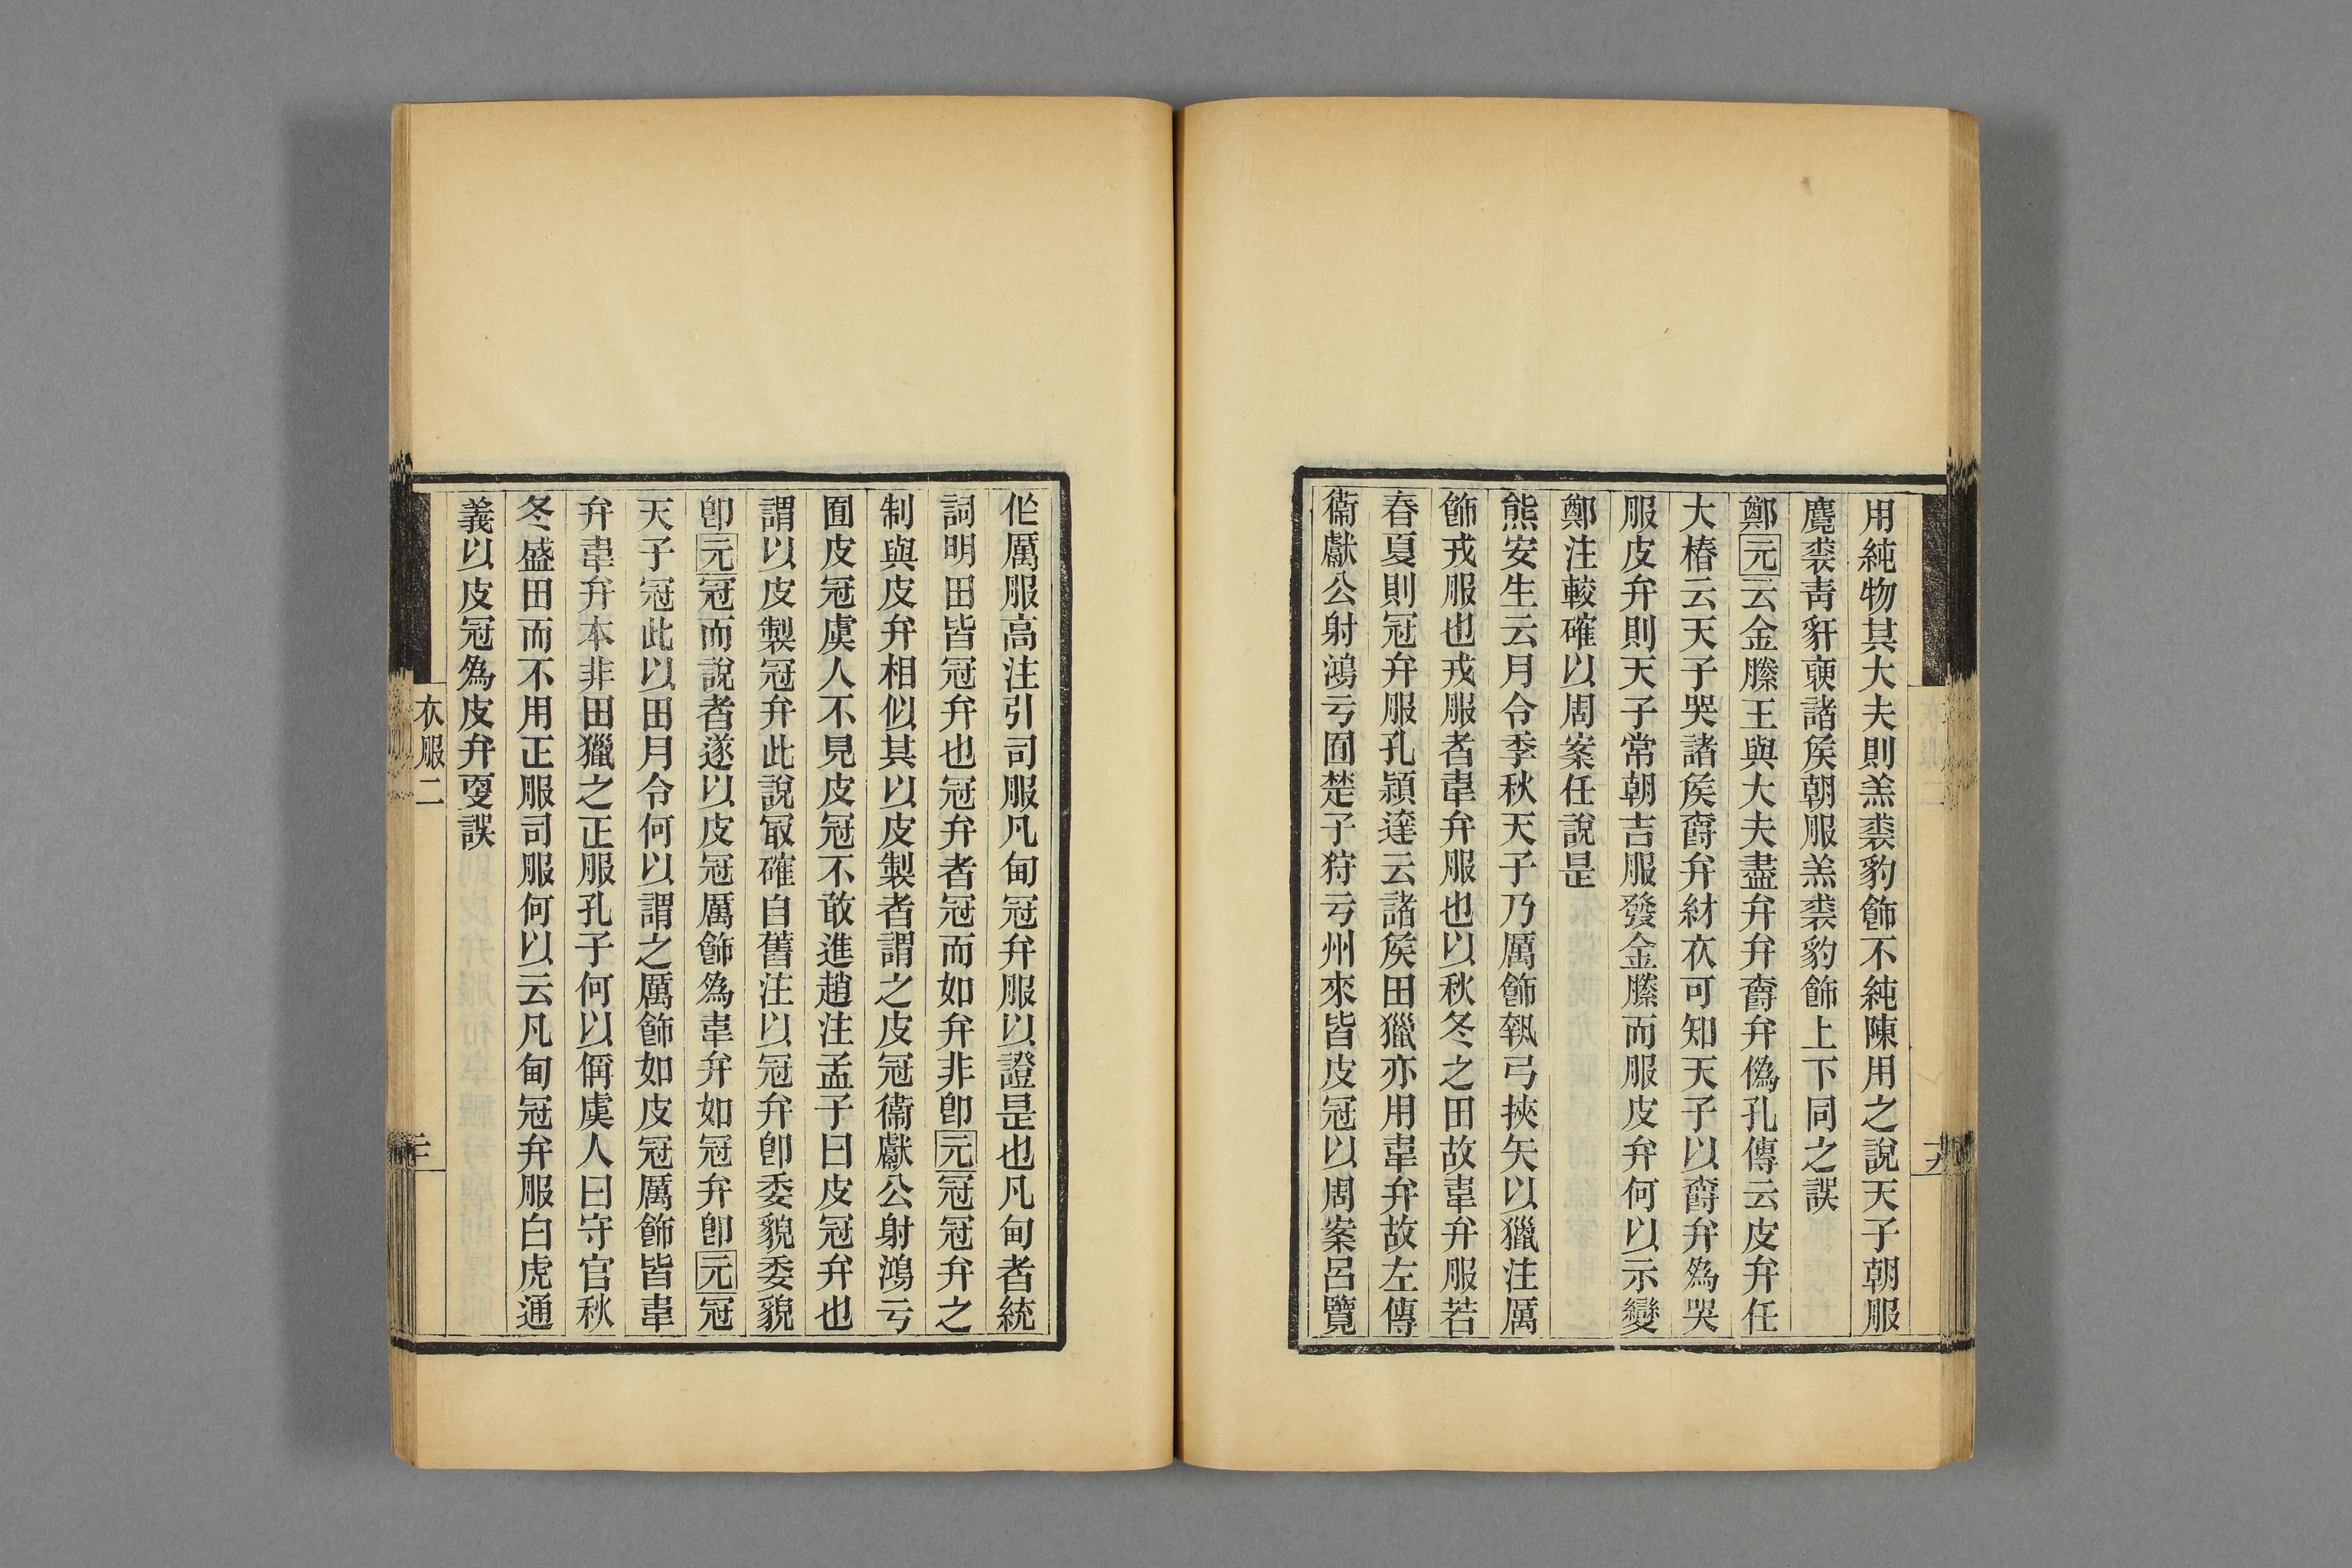 用純物其大夫則羔裘豹飾不純陳用之說天子朝服
麑裘靑豻褎諸矦朝服羔裘豹飾上下同之誤
鄭元云金縢王與大夫盡弁弁爵弁僞孔傳云皮弁任
大椿云天子哭諸矦爵弁紂衣可知天子以爵弁爲哭
服皮弁則天子常朝吉服發金縢而服皮弁何以示變
鄭注較確以周案任說是
熊安生云月令季秋天子乃厲飾執弓挾矢以獵注厲
飾戎服也戎服者韋弁服也以秋冬之田故韋弁服若
春夏則冠弁服孔穎達云諸矦田獵亦用韋弁故左傳
衞獻公射鴻亏囿楚子狩亏州來皆皮冠以周案呂覽
作厲服高注引司服凡甸冠弁服以證是也凡甸者統
詞明田皆冠弁也冠弁者冠而如弁非卽元冠冠弁之
制與皮弁相似其以皮製者謂之皮冠衞獻公射鴻亏
囿皮冠虞人不見皮冠不敢進趙注孟子曰皮冠弁也
謂以皮製冠弁此說冣確自舊注以冠弁卽委貌委貌
卽元冠而說者遂以皮冠厲飾爲韋弁如冠弁卽元冠
天子冠此以田月令何以謂之厲飾如皮冠厲飾皆韋
弁韋弁本非田獵之正服孔子何以偁虞人曰守官秋
冬盛田而不用正服司服何以云凡甸冠弁服白虎通
義以皮冠爲皮弁㪅誤
衣服二